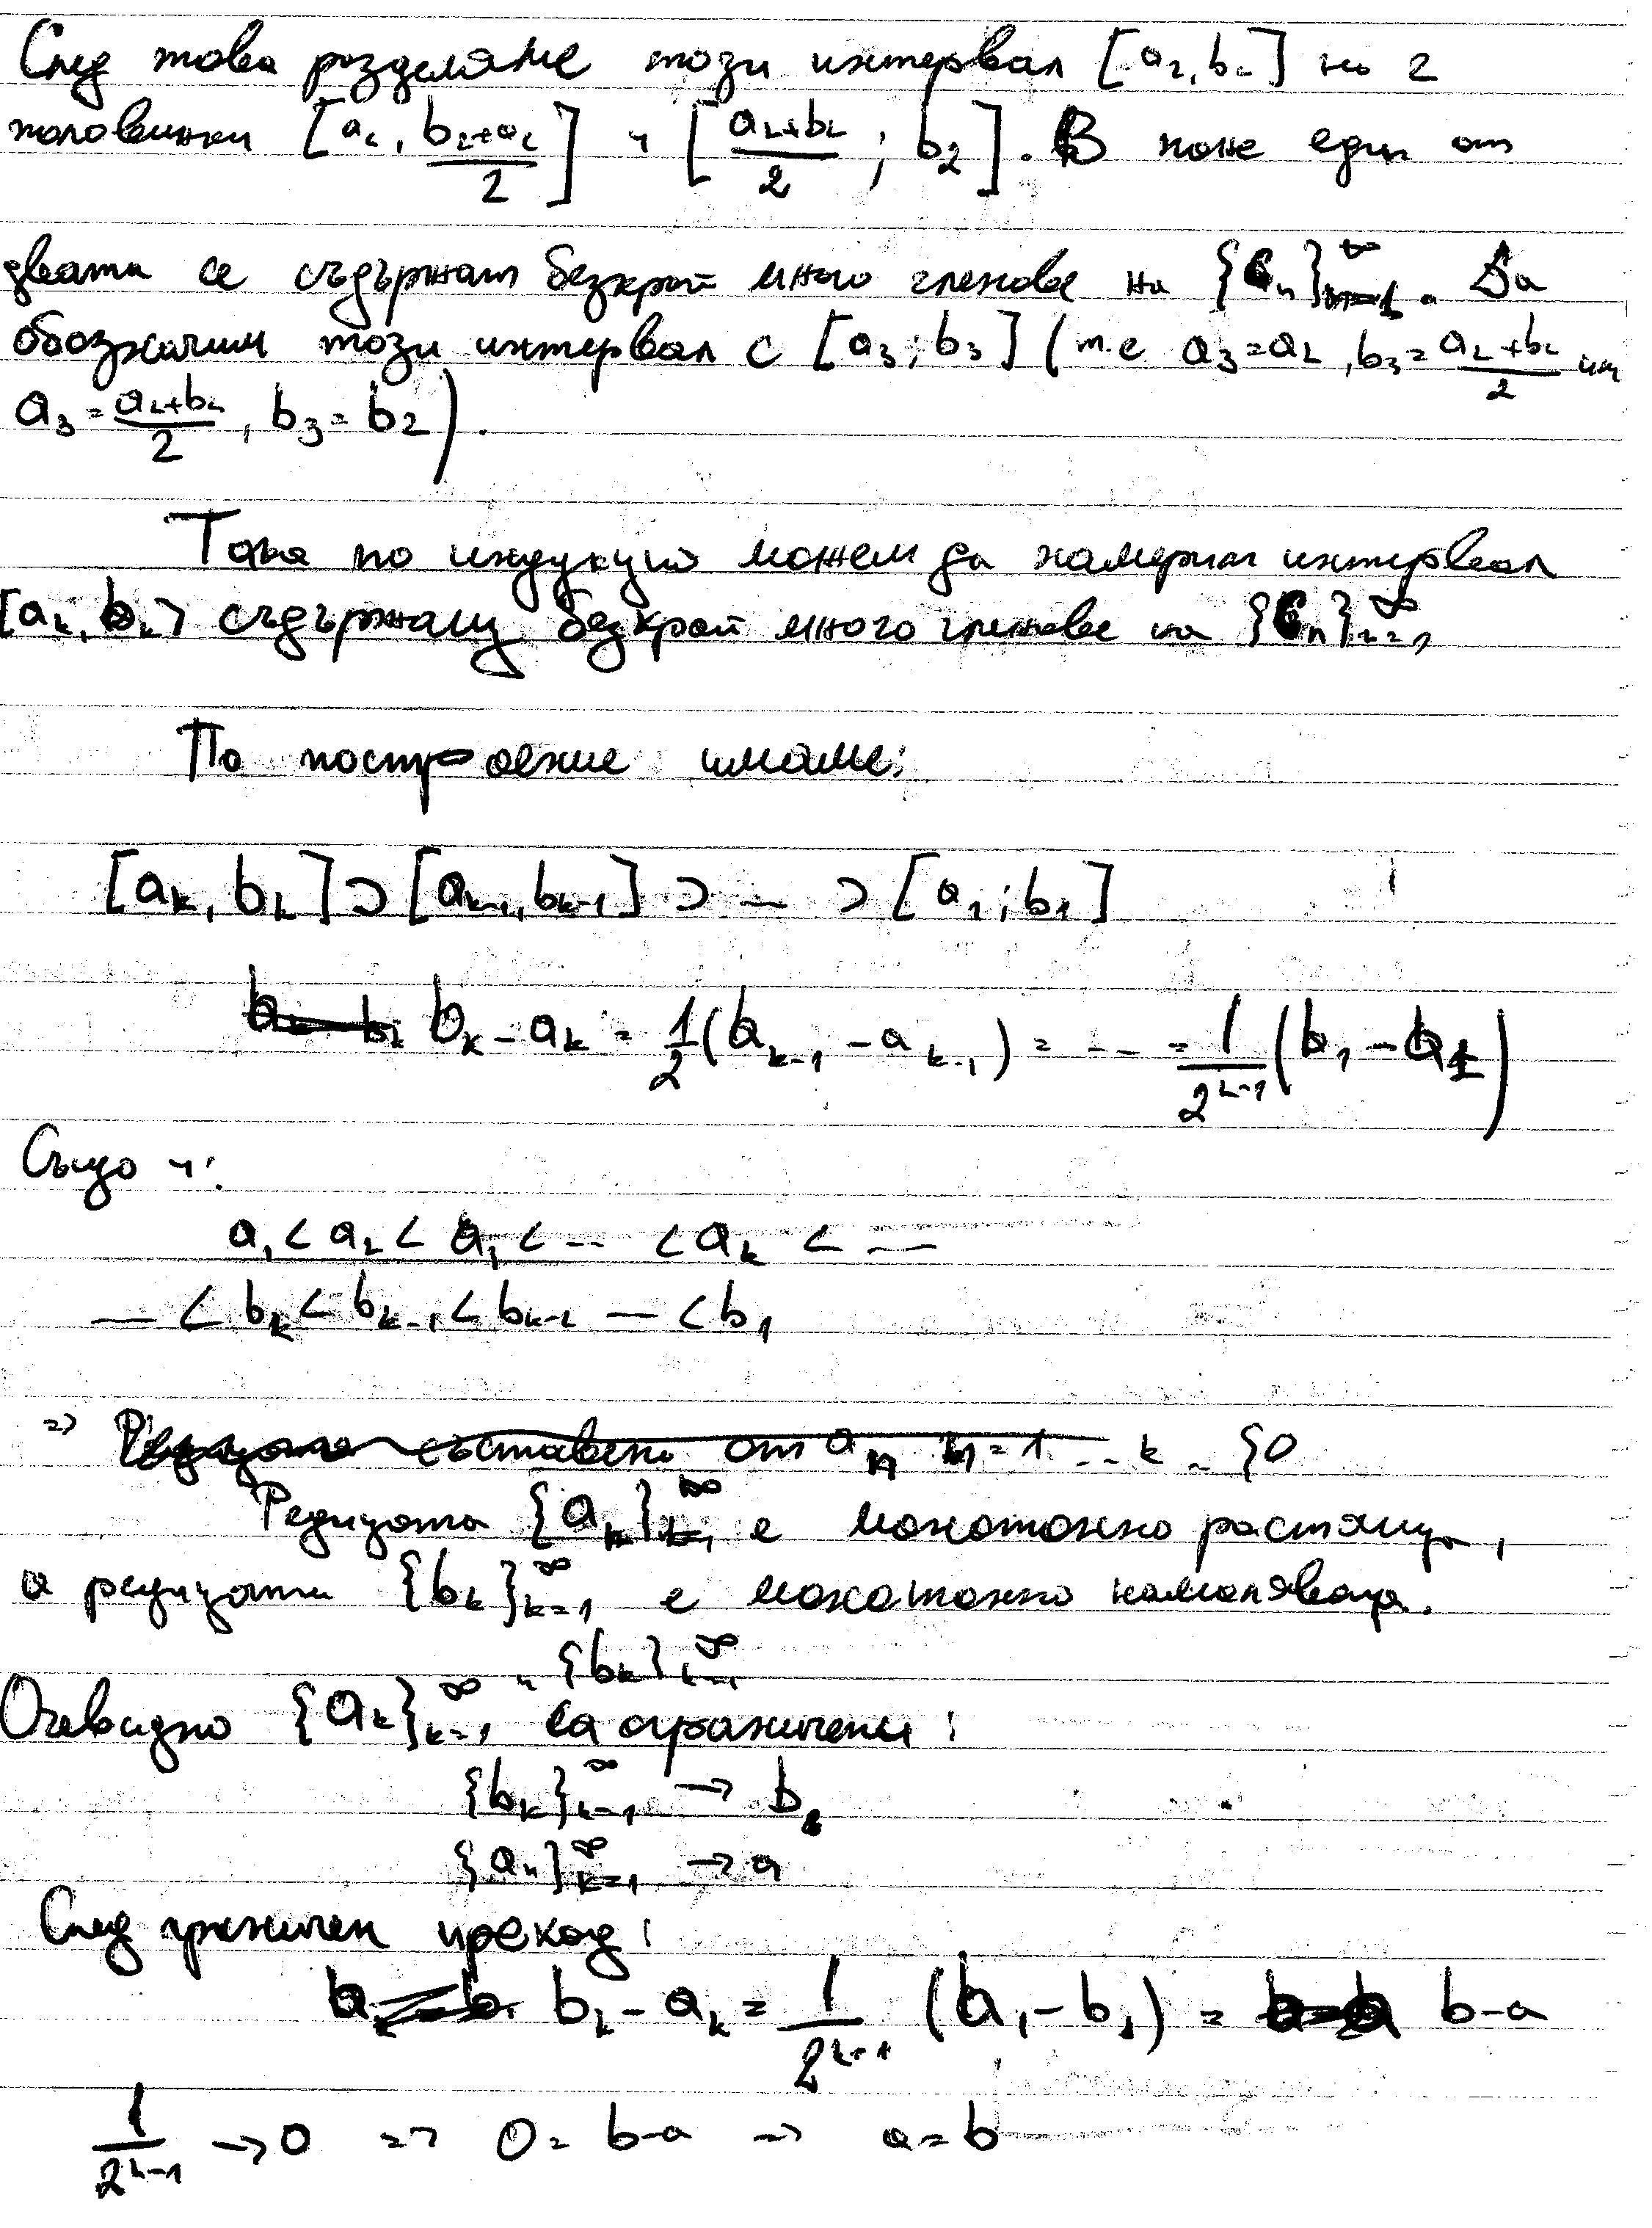 След това разделяме този интервал [a₂, b₂] на 2
половинки [a₂, (b₂+a₂)/2] и [(a₂+b₂)/2 ; b₂]. В поне един от
двата се съдържат безкрай много членове на {Cₙ}ₙ₌₁^∞. Да
обозначим този интервал с [a₃; b₃] (т.е a₃=a₂, b₃=(a₂+b₂)/2 или
a₃=(a₂+b₂)/2, b₃=b₂).
Така по индукция можем да намерим интервал
[aₖ, bₖ] съдържащ безкрай много членове на {Cₙ}ₙ₌₁^∞
По построение имаме:
[aₖ, bₖ] ⊃ [aₖ₋₁, bₖ₋₁] ⊃ ... ⊃ [a₁; b₁]
bₖ - aₖ = 1/2 (bₖ₋₁ - aₖ₋₁) = ... = 1/2^(k-1) (b₁ - a₁)
Също и:
a₁ < a₂ < a₁ < ... < aₖ < ...
... < bₖ < bₖ₋₁ < bₖ₋₂ ... < b₁
=> Редицата съставена от aₙ n=1...k
Редицата {aₖ}ₖ₌₁^∞ е монотонно растяща,
а редицата {bₖ}ₖ₌₁^∞ е монотонно намаляваща.
и {bₖ}ₖ₌₁^∞
Очевидно {aₖ}ₖ₌₁^∞ са ограничени:
{bₖ}ₖ₌₁^∞ → b
{aₖ}ₖ₌₁^∞ → a
След граничен преход:
bₖ - aₖ = 1/2^(k-1) (a₁ - b₁) = b-a
1/2^(k-1) → 0 => 0 = b-a => a=b